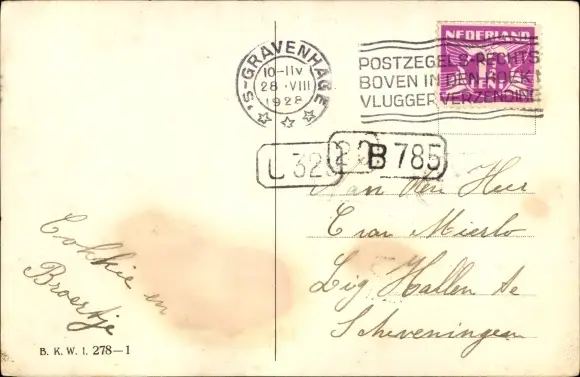 's-GRAVENHAGE
10-11V
28.VIII
1928
NEDERLAND
POSTZEGELS RECHTS
BOVEN IN DEN HOEK!
VLUGGER VERZENDING
L 323
22
B 785
Aan den Heer
C van Mierlo
Lig Hallen te
Scheveningen
Cokkie en
Broertje
B. K. W. I. 278-1